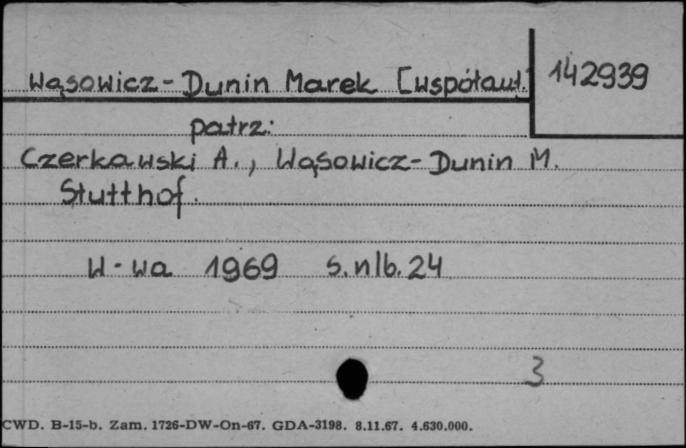 Wąsowicz-Dunin Marek [współaut.] 142939
patrz:
Czerkawski A., Wąsowicz-Dunin M.
Stutthof.
W-wa 1969 s. nlb. 24
3
CWD. B-15-b. Zam. 1726-DW-On-67. GDA-3198. 8.11.67. 4.630.000.